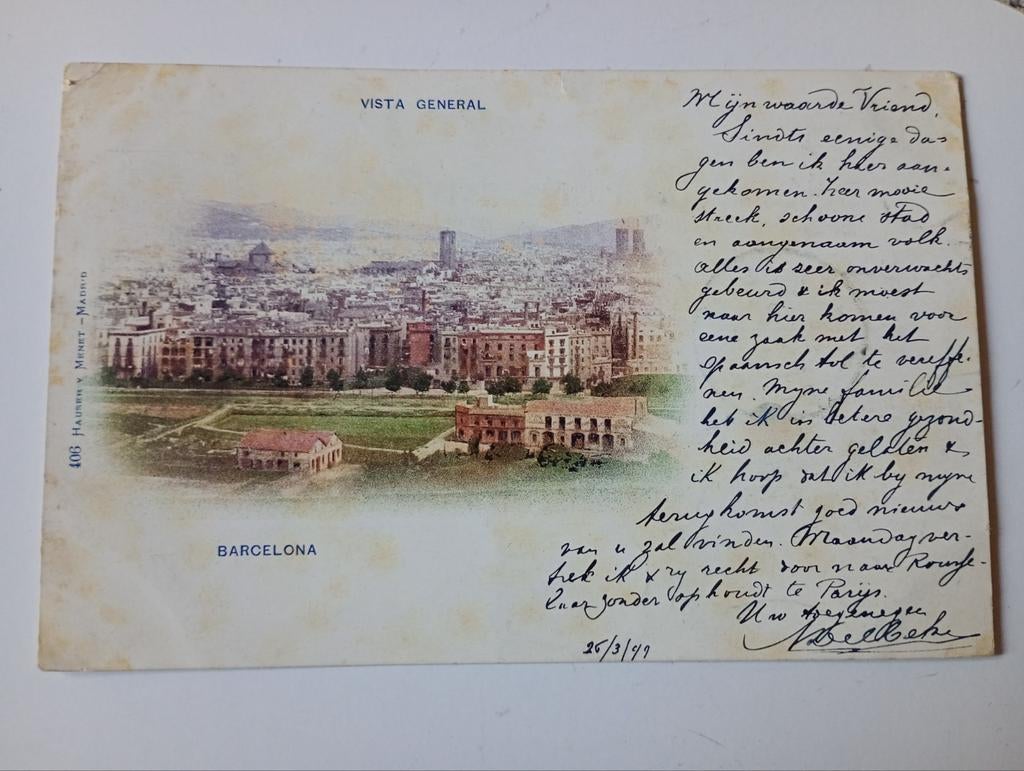 VISTA GENERAL
Mijn waarde Vriend,
Sindts eenige da-
gen ben ik hier aan-
gekomen. Zeer mooie
streek, schoone stad
en aangenaam volk.
Alles is zeer onverwachts
gebeurd & ik moest
naar hier komen voor
eene zaak met het
spaansch tol te vereffe-
nen. Myne familie
heb ik in betere gezond-
heid achter gelaten &
ik hoop dat ik by myne
terugkomst goed nieuws
van u zal vinden. Maandag ver-
trek ik & ry recht door naar
zonder ophoudt te Parijs.
Uw toegenegen
26/3/
406 HAUSER Y MENET - MADRID
BARCELONA